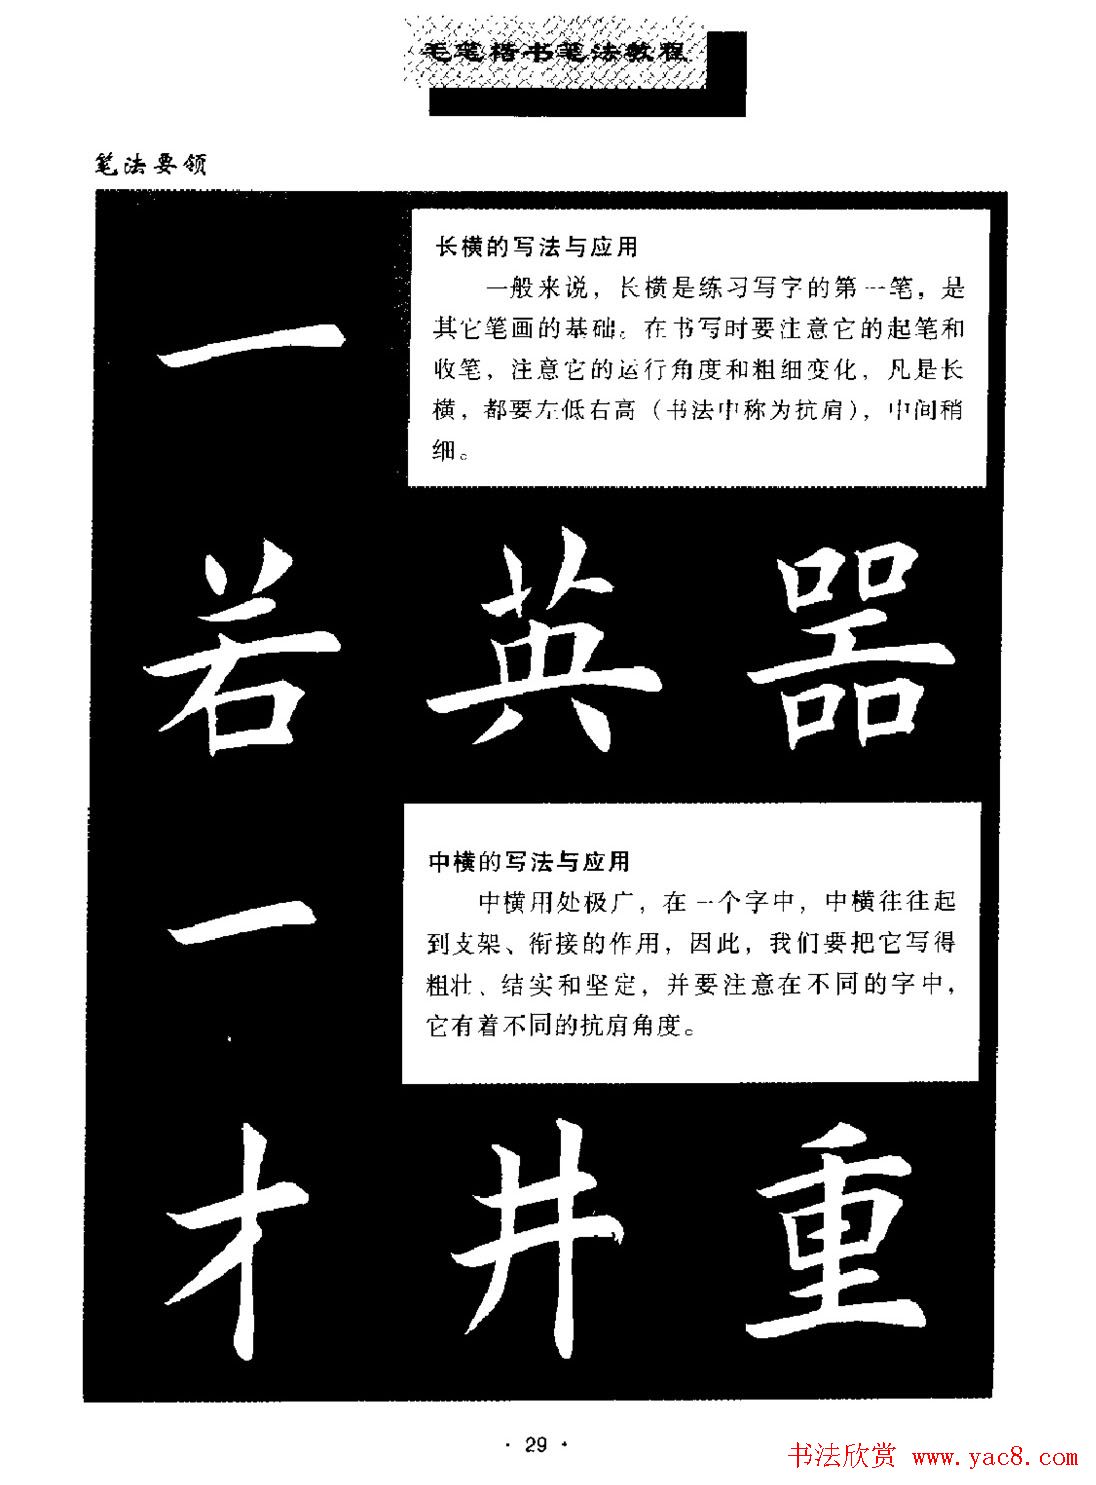 毛笔楷书笔法教程
笔法要领
一
长横的写法与应用
一般来说，长横是练习写字的第一笔，是
其它笔画的基础。在书写时要注意它的起笔和
收笔，注意它的运行角度和粗细变化，凡是长
横，都要左低右高（书法中称为抗肩），中间稍
细。
若 英 器
一
中横的写法与应用
中横用处极广，在一个字中，中横往往起
到支架、衔接的作用，因此，我们要把它写得
粗壮、结实和坚定，并要注意在不同的字中，
它有着不同的抗肩角度。
才 井 重
· 29 ·
书法欣赏 www.yac8.com